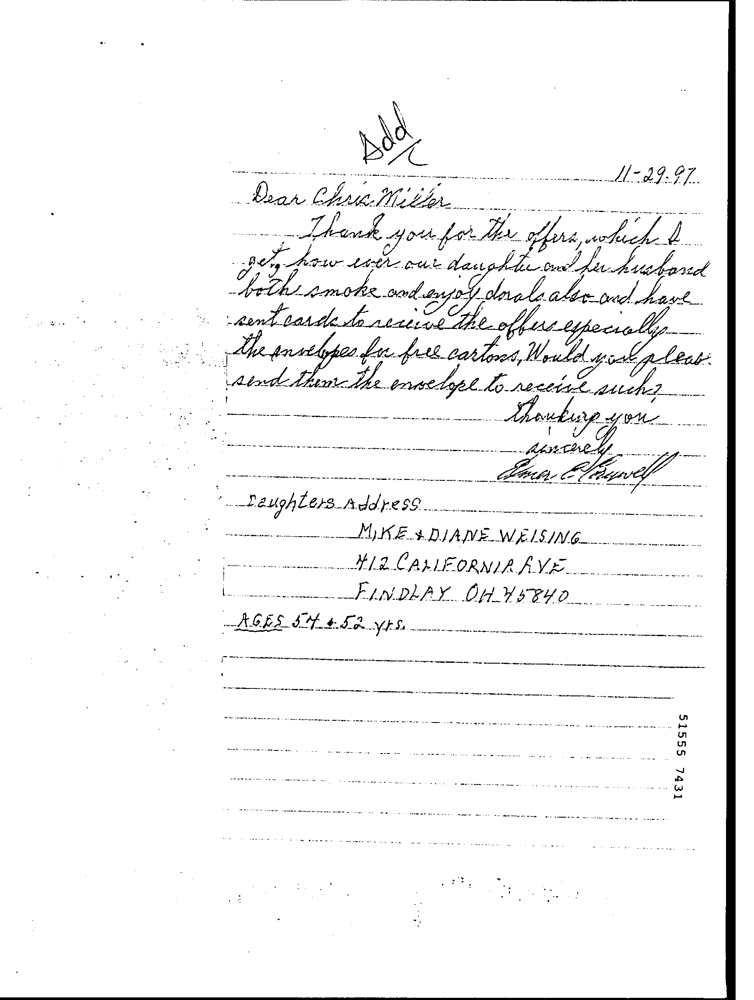 Add
11-29-97
Dear Chris Miller
Thank you for the offers, which I
get, how ever our daughter and her husband
both smoke and enjoy dorals also and have
sent cards to receive the offers especially
the envelopes for free cartons, Would you pleas
send them the envelope to receive such?
Thanking you
sincerely
Daughters Address
MIKE & DIANE WEISING
412 CALIFORNIA AVE
FINDLAY OH 45840
AGES 54 & 52 yrs.
51555 7431